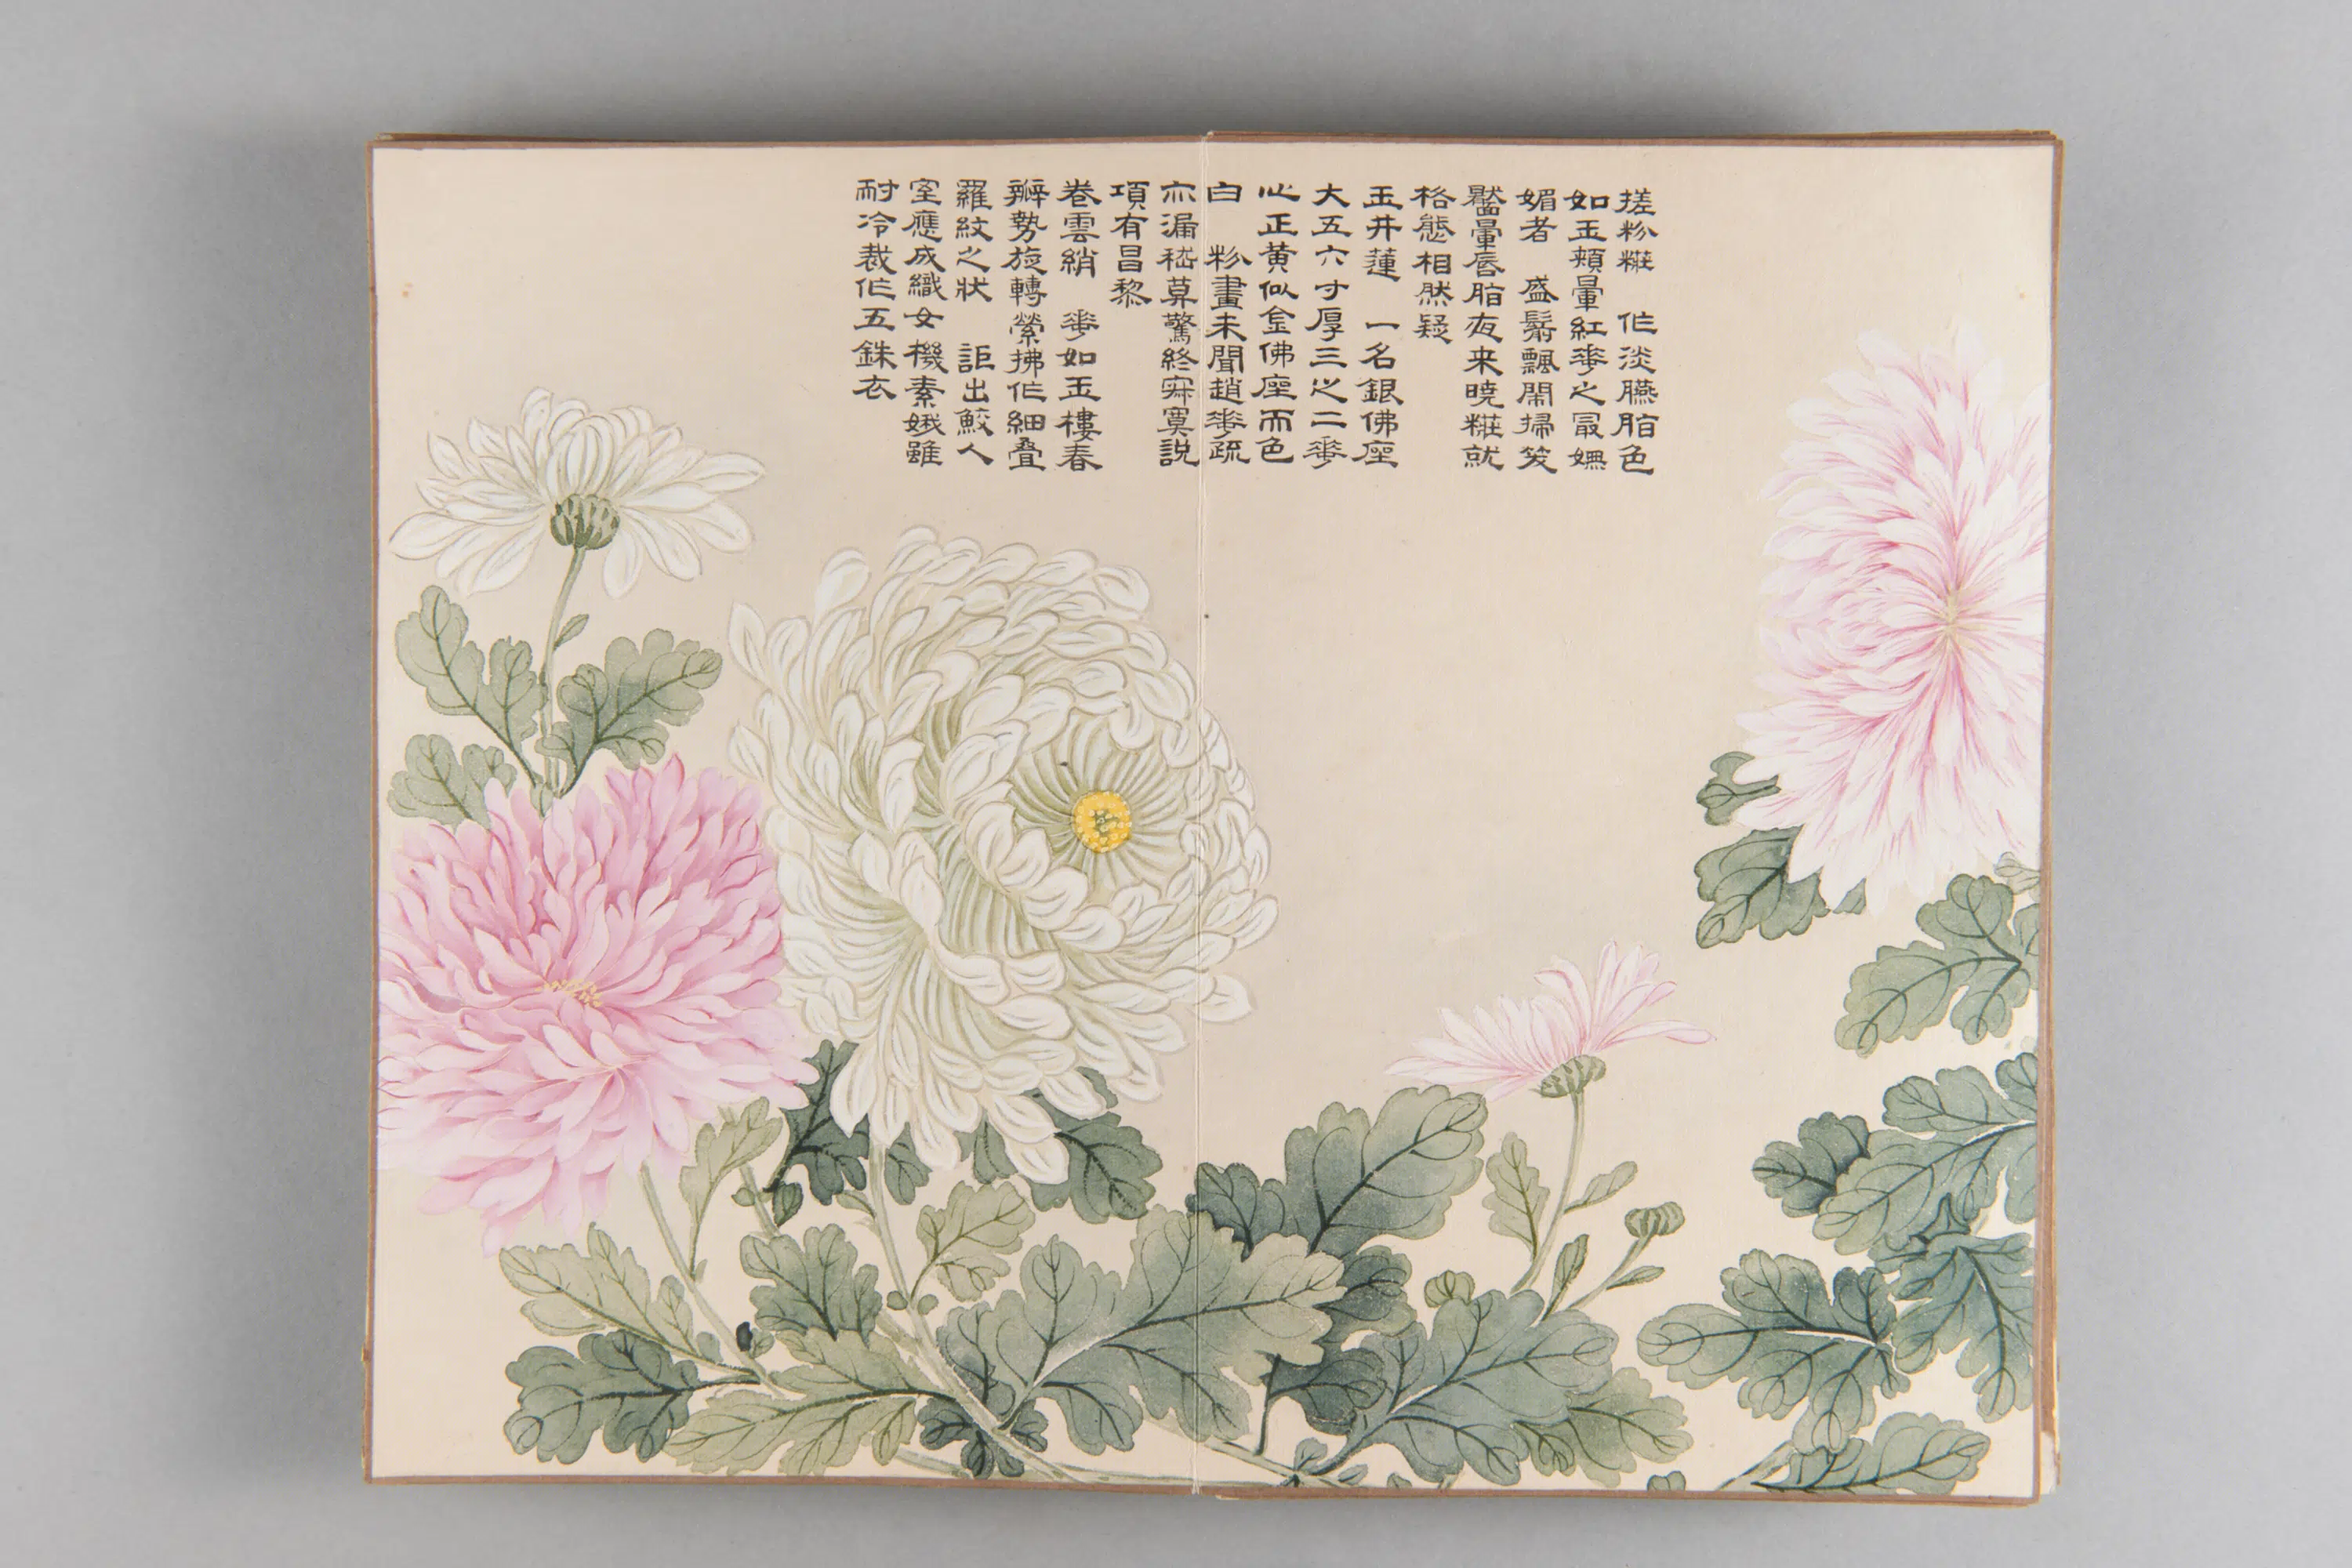 搓粉糚 作淡臙脂色
如玉頰暈紅華之冣嫵
媚者 盛鬋飄閑掃笑
黶暈唇脂夜来曉糚就
格態相然疑
玉井蓮 一名銀佛座
大五六寸厚三之二華
心正黄似金佛座而色
白 粉畫未聞趙華疏
亦漏嵇莫驚終寂寞説
項有昌黎
卷雲綃 華如玉樓春
瓣勢旋轉縈拂作細疊
羅紋之狀 詎出鮫人
室應成織女機素娥雖
耐冷裁作五銖衣